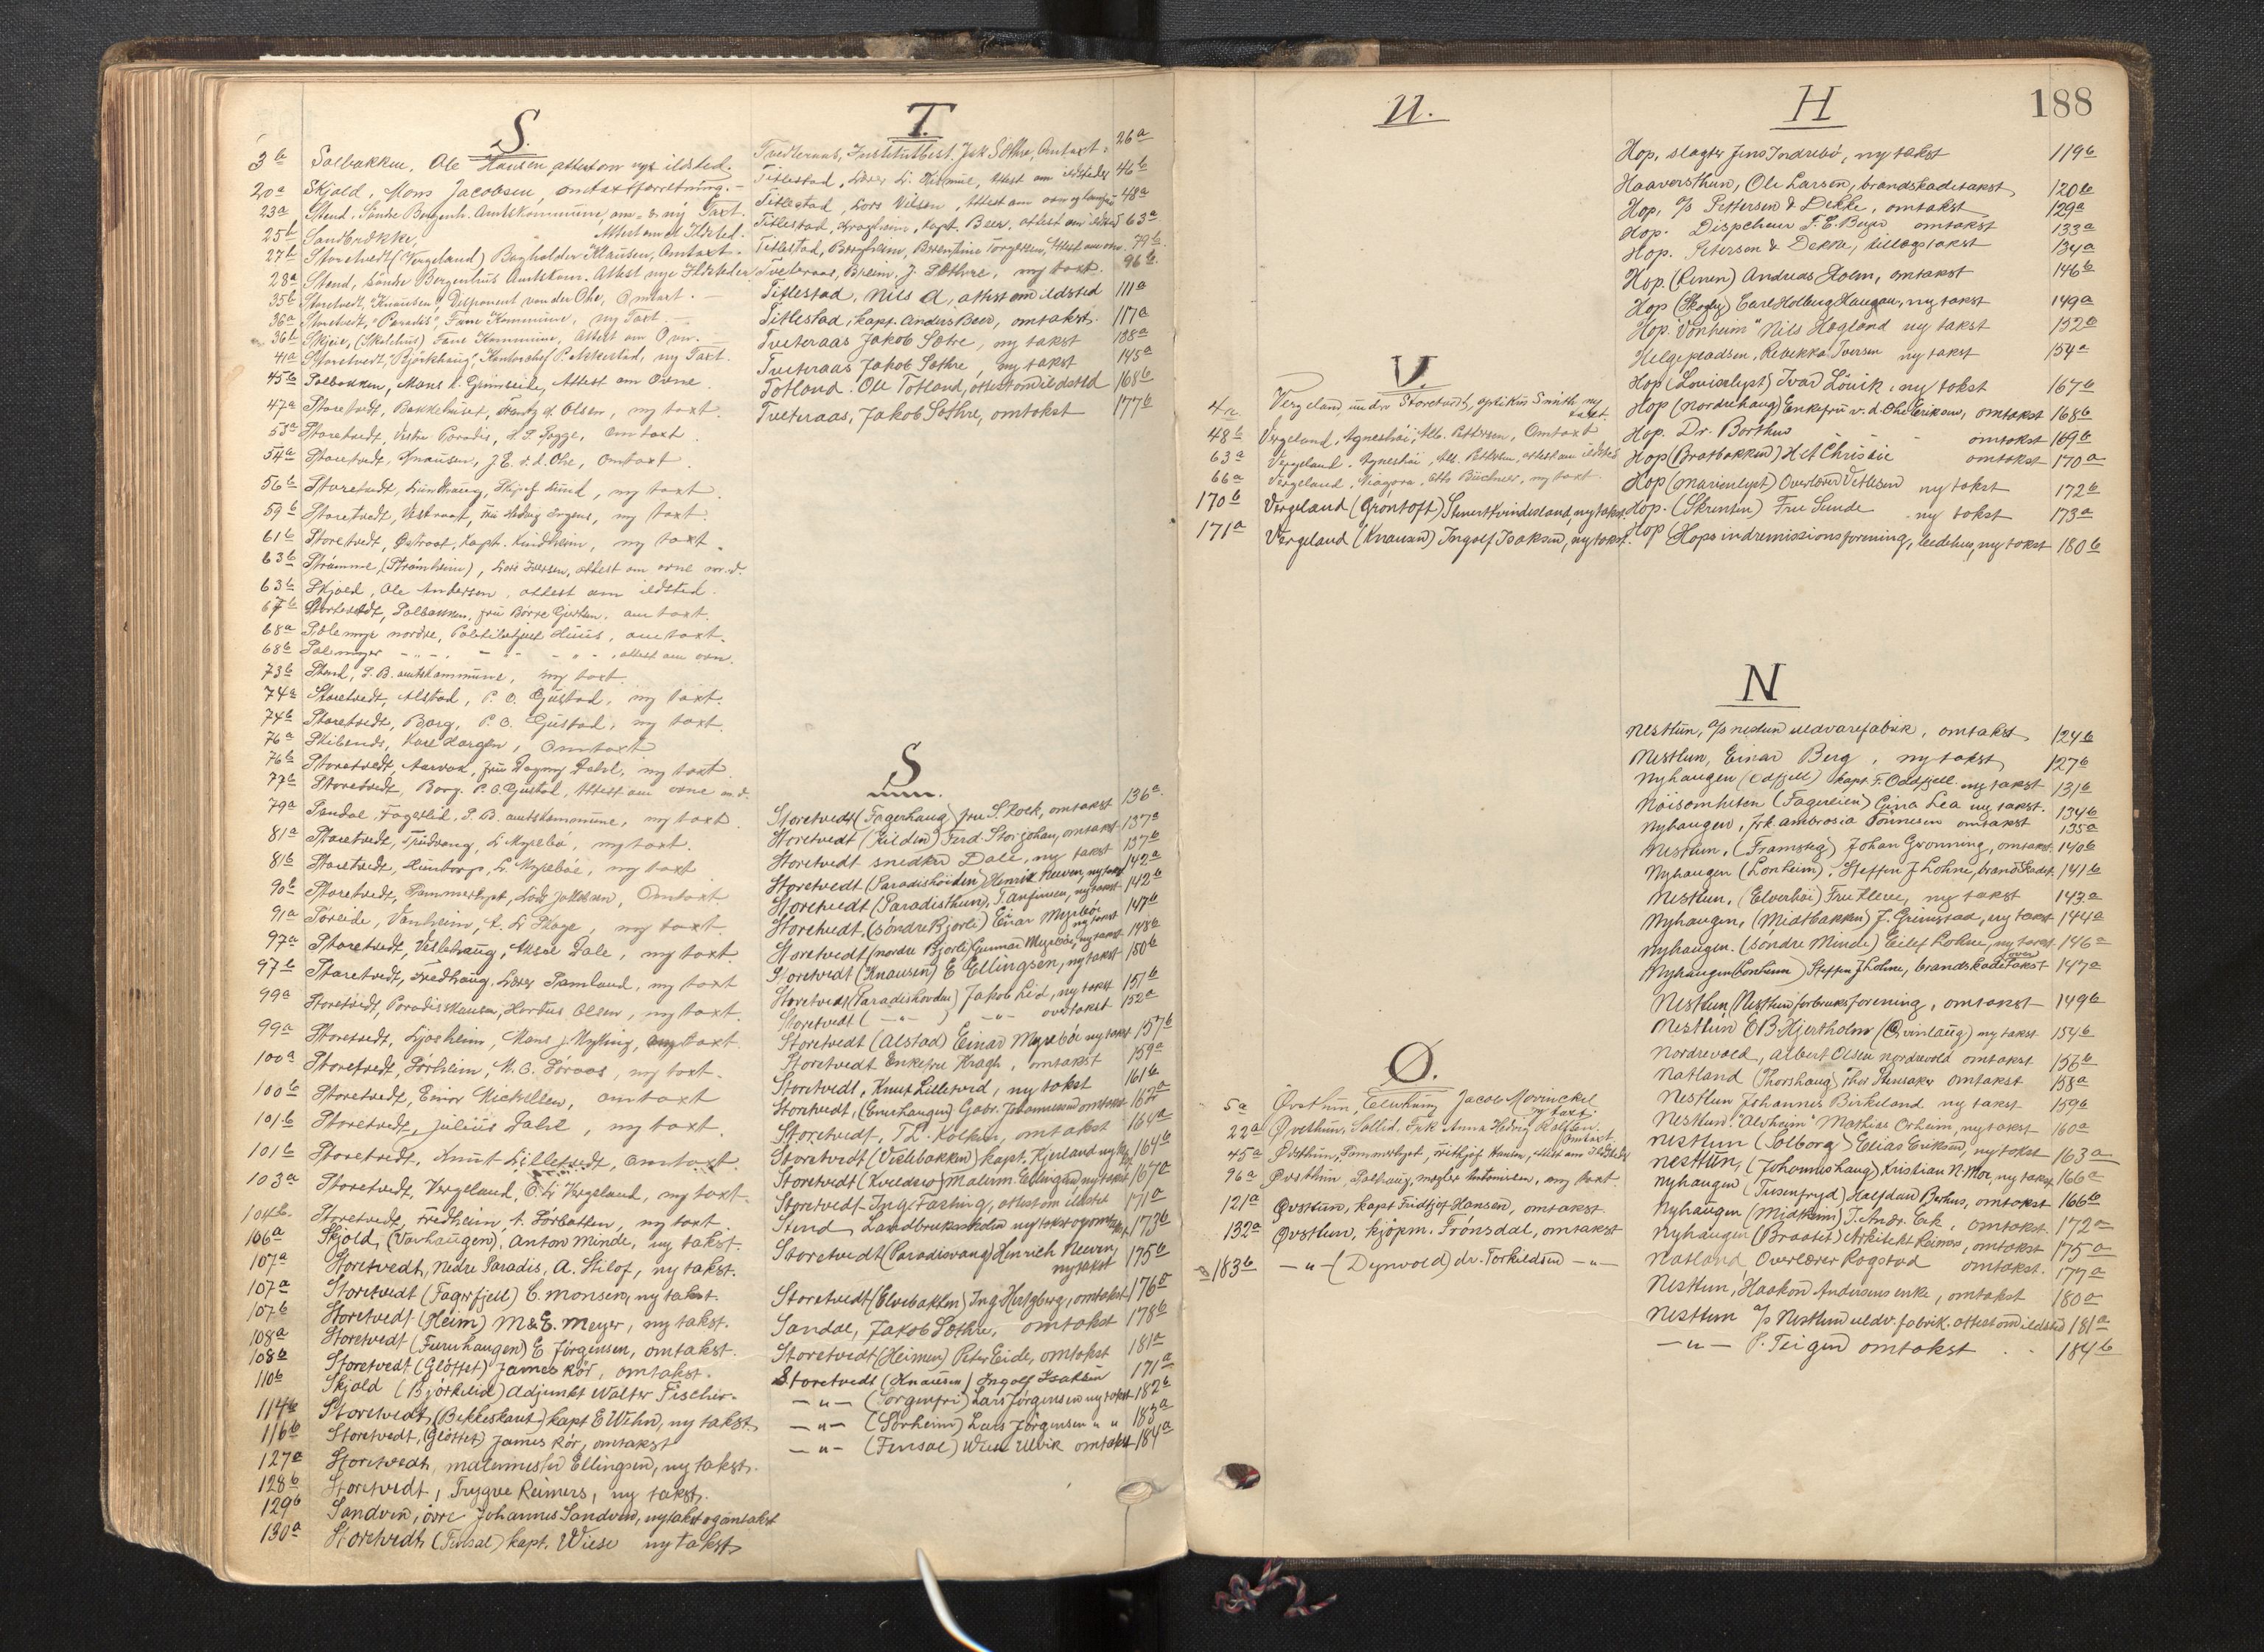 S.
3b Solbakken, Ole Hansen attest om nye ildsted.
20a Skjold, Mons Jacobsen, omtaxtforretning. -
23a Stend, Søndre Bergenh. Amtskommune, om- & ny Taxt.
25b Sandbrekke, Attest om et Ildsted.
27b Storetvedt (Vergeland) Bogholder Klausen, Omtaxt.
28a Stend, Søndre Bergenhus Amtskom. Attest nye Ildsteder
35b Storetvedt, "Knausen", Disponent von der Ohe, Omtaxt. -
36a Storetvedt, "Paradis", Fane Kommune, ny Taxt. -
36b Skjeie, (Skolehus) Fane Kommune, Attest om Ovn. -
41a Storetvedt, "Bjørkhaug", Kontorchef P. Askestad, ny Taxt.
45b Solbakken, Mons K. Grimseid, Attest om Ovne.
47a Storetvedt, Bakkehuset, Frantz A. Olsen, ny taxt.
53a Storetvedt, Vestre Paradis, H. P. Bogge, Omtaxt.
54a Storetvedt, Knausen, J. E. v. d. Ohe, Omtaxt.
56b Storetvedt, Lundhaug, Skipsf. Lund, ny taxt.
59b Storetvedt, Vestraat, Fru Hedvig Irgens, ny taxt.
61b Storetvedt, Østraat, Kapt. Kindheim, ny taxt.
63b Strømme, (Strømheim), Lars Iversen, attest om ovne m.d.
63b Skjold, Ole Andersen, attest om ildsted.
67b Storetvedt, Solbakken, fru Børre Gjertsen, omtaxt.
68a Solemyr nordre, Politibetjent Huus, omtaxt.
68b Solemyr - " - - " - attest om ovn.
73b Stend, S. B. amtskommune, ny taxt.
74a Storetvedt, Alstad, P. O. Gjustad, ny taxt.
74b Storetvedt, Borg, P. O. Gjustad, ny taxt.
76a Skibenes, Karl Hargen, Omtaxt
76b Storetvedt, Aarvok, fru Dagny Dahl, ny taxt.
77b Storetvedt, Borg, P. O. Gjustad, Attest om ovne m.d.
79a Sandal, Fagerlid, S. B. amtskommune, ny taxt.
81a Storetvedt, Trudvang, L. Myrebø, ny taxt.
81b Storetvedt, Hunborge, L. Myrebøe, ny taxt
90b Storetvedt, Sommerlyst, Lars Jakobsen, Omtaxt.
91a Søreide, Vonheim, L. Skage, ny taxt.
97a Storetvedt, Veslehaug, Aksel Dale, ny taxt.
97b Storetvedt, Fredhaug, Lærer Samland, ny taxt
99a Storetvedt, Paradisknausen, Hartvig Olsen, ny taxt.
99a Storetvedt, Ljosheim, Mons J. Myking, ny taxt.
100a Storetvedt, Sørheim, M. O. Søraas, ny taxt.
100b Storetvedt, Einar Mickelsen, omtaxt
101b Storetvedt, Julius Dahl, ny taxt.
101b Storetvedt, Knut Lilletvedt, Omtaxt.
103a Storetvedt, Vergeland, O. L. Vergeland, ny taxt.
104b Storetvedt, Fredheim, A. Sørbotten, ny taxt.
106a Skjold, (Vorhaugen), Anton Minde, ny takst.
107a Storetvedt, Nedre Paradis, A. Stilof, ny takst.
107a Storetvedt (Fagerfjell) E. Monsen, ny takst.
107b Storetvedt (Heim) M & E. Meyer, ny takst.
108a Storetvedt (Furuhaugen) E Jørgensen, omtakst.
108b Storetvedt (Gløttet) James Rör, omtakst.
110b Skjold (Björkelid) adjunkt Walter Fischer.
114b Storetvedt, (Bekkeskaut) kapt E Wihn, ny takst,
116b Storetvedt, (Gløttet) James Rör, omtakst
127a Storetvedt, malermester Ellingsen, ny takst.
128b Storetvedt, Trygve Reimers, ny takst.
129b Sandven, övre Johannes Sandven, nytakst og omtakst
130a Storetvedt (Finsal) kapt. Wiese ny takst
T.
Tvedteraas, Institutbest. Jak Sothre, Omtaxt. 26a
Titlestad, Lærer L. Holmine, Attest om ildsteder 46b
Titlestad, Lars Nilsen, Attest om ovn og 48a
Titlestad, Kragheim, Kapt. Beer, attest om ildsted 63a
Titlestad, Bergheim, Berentine Torgersen, Attest om ovn. 79b
Tveteraas, Breim, J. Sothre, ny taxt. 96b
Titlestad, Nils A, attest om ildsted 111a
Titlestad, kapt. Anders Beer, omtakst. 117a
Tveteraas Jakob Sotre, ny takst 138a
Tveteraas Jakob Sothre, ny takst 145a
Totland. Ole Totland, attest om ildsted 168b
Tveteraas, Jakob Sothre, omtakst 177b
S
Storetvedt (Fagerhaug) fru S. Koch, omtakst 136a
Storetvedt (Kilden) Ferd. Storjohan, omtakst 137a
Storetvedt snedker Dale, ny takst 137b
Storetvedt (Paradishöiden) Henrik Neeven, ny takst 142a
Storetvedt (Paradisthun), T. Amfinsen, ny takst 142b
Storetvedt, (söndre Bjorli) Einar Myrebö ny takst 147b
Storetvedt (nordre Bjorli) Gunnar Myrebö, ny takst 148b
Storetvedt (Knausen) E Ellingsen, ny takst 150b
Storetvedt (Paradishovden) Jakob Lid, ny takst 151b
Storetvedt ( -"- ) -"- overtakst 152a
Storetvedt (Alstad) Einar Myrebö ny takst 157b
Storetvedt Enkefru Kragh, omtakst 159a
Storetvedt, Knut Lilletvid, ny takst 161b
Storetvedt, (Einerhaugen) Gabr. Johannessen omtakst 162a
Storetvedt, T L. Kolken, omtakst 164a
Storetvedt (Veslebakken) kapt. Kjerland ny takst 164b
Storetvedt (Kveldsro) Malerm. Ellingsen ny takst 167a
Storetvedt Inga Fasting, attest om ildsted 171a
Stend Landbruksskolen ny takst og omtakst 173b
Storetvedt (Paradisvang) Hinrich Neeven ny takst 175a
Storetvedt (Elvebakken) Ing. Hertzberg, omtakst 176a
Sandal, Jakob Sothre, omtakst 178b
Storetvedt (Heimen) Peter Eide, omtakst 181a
Storetvedt (Knausen) Ingolf Isaksen 171a
-"- (Sorgenfri) Lars Jørgensen ny takst 182b
-"- (Sørheim) Lars Jörgensen " " 183a
-"- (Finsal) Wiese Ulvik omtakst 184a
U.
V.
4a. Vergeland under Storetvedt, Smith ny taxt
48b Vergeland, Agneshøi, Alb. Pettersen, Omtaxt
63a Vergeland, Agneshøi, Alb. Pettersen, attest om ildsted
66a Vergeland, Niagara, Otto Büchner, ny taxt.
170b Vergeland (Gröntoft) Stenert Kvindesland, ny takst
171a Vergeland (Knausen) Ingolf Isaksen, ny takst.
Ø.
5a Øvsthun, Elvetun Jacob Mowinckel ny taxt.
22a Øvsthun, Sollid. Frk Anna Hedvig Rolfsen. Omtaxt.
45a Østhun, Sommerlyst, Frithjof Hansen, Attest om Ildsted
96a Øvsthun, Solhaug, megler Antonisen, ny taxt.
121a Øvstun, kapt Fridtjof Hansen, omtakst
132a Øvstun, kjøpm. Frønsdal, omtakst
183b -"- (Dynvold) dr. Torkildsen -"-
H
188
Hop, slagter Jens Indrebö, ny takst 119b
Haaversthun, Ole Larsen, brandskadetakst 120b
Hop, a/s Pettersen & Dekke, omtakst 129a
Hop. Dispacheur F. E. Beyer omtakst 133a
Hop. Petersen & Dekke, tillægstakst 134a
Hop. (Renen) Andreas Holm, omtakst 146b
Hop (Skogly) Carl Holberg Haugan, ny takst 149a
Hop "Vonheim" Nils Hegland ny takst 152a
Helgepladsen, Rebekka Iversen ny takst 154a
Hop (Louiselyst) Ivar Lövik, ny takst 167b
Hop (Nordrehaug) Enkefru v. d. Ohe Eriksen, omtakst 168b
Hop. Dr. Borthen omtakst 169b
Hop (Bratbakken) H et Christie omtakst 170a
Hop (Marienlyst) Overlærer Vetlesen ny takst 172b
Hop. (Skrenten) Fru Sunde ny takst 173a
Hop (Hops indremissionsforening, bedehus, ny takst 180b
N
Nesttun, a/s Nestun uldvarefabrik, omtakst 124b
Nesttun, Einar Berg, ny takst 127b
Nyhaugen (Odfjell) kapt. F. Oddfjell ny takst 131b
Nöisomheten (Fagereien) Gina Lea ny takst. 134b
Nyhaugen, frk. Ambrosia Tönnesen omtakst 135a
Nestun, (Framsteg) Johan Grönning, omtakst. 140b
Nyhaugen (Lonheim), Steffen J Lohne, brandskadet. 141b
Nestun, (Elverhöi) Fru Kleve, ny takst 143a
Nyhaugen, (Midtbakken) J. Grimstad, ny takst 144a
Nyhaugen. (Söndre Minde) Eilef Lohne, ny takst 146a
Nyhaugen (Lonheim) Steffen J Lohne, brandskade over takst 147a
Nesttun, Nesttun forbruksforening, omtakst 149b
Nesttun E B. Hjertholm (Qvinlaug) ny takst 154b
Nordrevold, Albert Olsen Nordrevold omtakst 156b
Natland (Thorshaug) Thor Stensaker omtakst 158a
Nesttun Johannes Birkeland ny takst 159b
Nesttun. "Alvheim" Mathias Orheim, ny takst 160a
Nesttun (Solborg) Elias Eriksen, ny takst 163a
Nesttun, (Johanneshaug) Kristian N. Moe, ny takst 166a
Nyhaugen (Tusenfryd) Halfdan Berhus, omtakst 166b
Nyhaugen (Midtheim) J. Andr. Eek, omtakst. 172a
Nyhaugen (Braatet) Arkitekt Reimers, omtakst 175a
Natland Overlærer Rogstad omtakst. 177a
Nesttun, Haakon Andersens enke, omtakst 180a
Nesttun a/s Nesttun uldv. fabrik. attest om ildsted 181a
-"- P. Teigen omtakst 184b